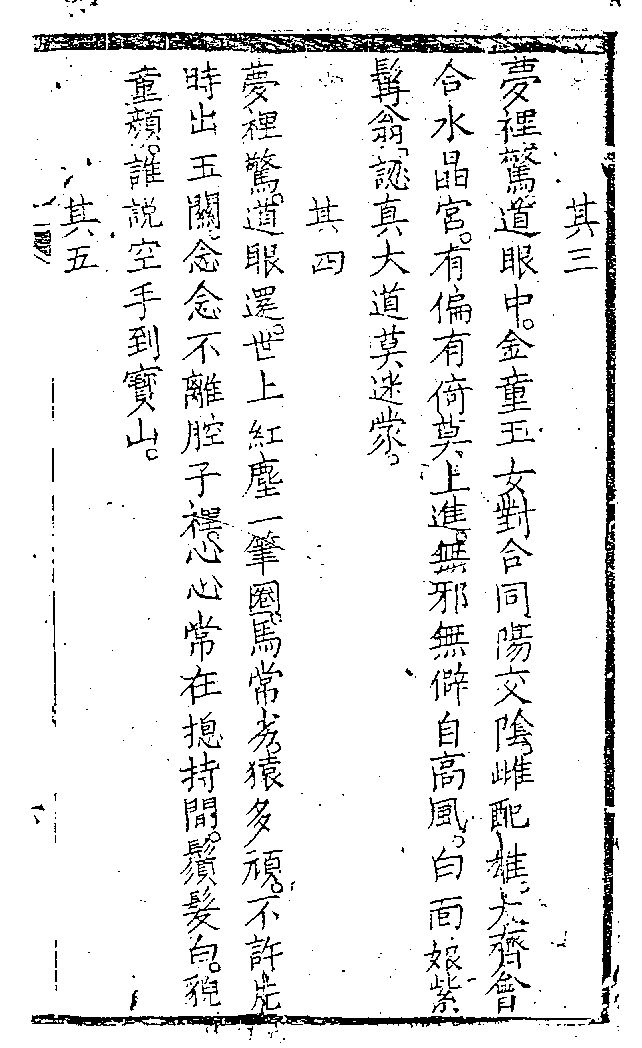 其三
夢裡驚道眼中。金童玉女對合同陽交陰。雌配雄。大齊會
合水晶宮。有偏有倚莫上進。無邪無僻自高風。白面娘紫
髯翁認真大道莫迷嵗。
其四
夢裡驚。道眼還。世上紅塵一筆圈。馬常劣。猿多頑。不許片
時出玉關。念念不離腔子裡。心心常在摠持間。鬚髮白。貌
童顏。誰説空手到寶山。
其五